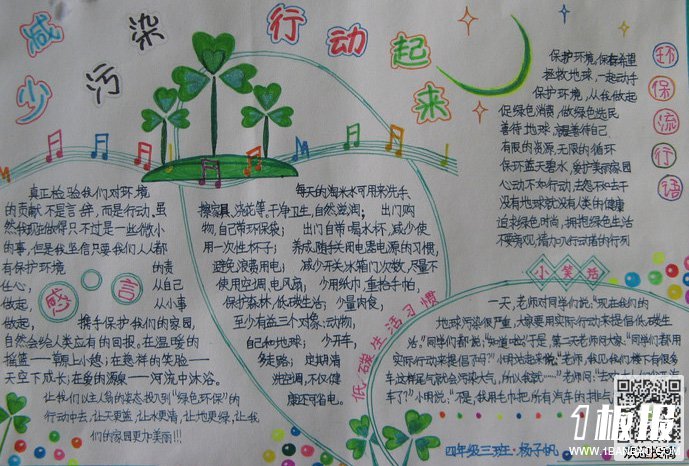 减少污染
行动起来
保护环境,保存希望
拯救地球,一起动手
保护环境,从我做起
促绿色消费,做绿色选民
善待地球,善待自己
有限的资源,无限的循环
保环蓝天碧水,爱护美丽家园
心动不如行动
没有地球就没有人类的健康
追求绿色时尚,拥抱绿色生活
环保流行语
真正检验我们对环境
的贡献不是言辞,而是行动,虽
然我现在做得只不过是一些微小
的事,但是我坚信只要我们人人都
有保护环境 的责
任心, 从自己
做起, 从小事
做起, 携手保护我们的家园,
自然会给人类立有的回报,在温暖的
摇篮——草原上小憩;在慈祥的笑脸——
天空下成长;在爱的源泉——河流中沐浴。
让我们以主人翁的姿态投入到“绿色环保”的
行动中去,让天更蓝,让水更清,让地更绿,让我
们的家园更加美丽!!!
感言
每天的淘米水可用来洗手,
擦家具、浇花等,干净卫生,自然滋润; 出门购
物,自己带环保袋; 出门自带喝水杯,减少使
用一次性杯子; 养成随手关闭电器电源的习惯,
避免浪费用电; 减少开关冰箱门次数,尽量不
使用空调、电风扇; 少用纸巾,重拾手帕,
保护森林,低碳生活; 少量肉食,
至少有益三个对像:动物,
自己和地球; 少开车,
多走路; 定期清
洗空调,不仅健
康还可省电。
低碳生活习惯
小笑话
一天,老师对同学们说:“现在我们的
地球污染很严重,大家要用实际行动来提倡低碳生
活。”同学们都说:“知道啦”于是,第二天老师问大家:“同学们都用
实际行动来提倡了吗?”小明大步走来说:“老师,我见我们楼下有很多
车这样尾气就会污染大气,所以我就……”老师问:
车了?”小明说:“不是,我用毛巾把所有汽车的排气
四年级三班·杨子帆
1板报
WWW.1BANBAO.COM